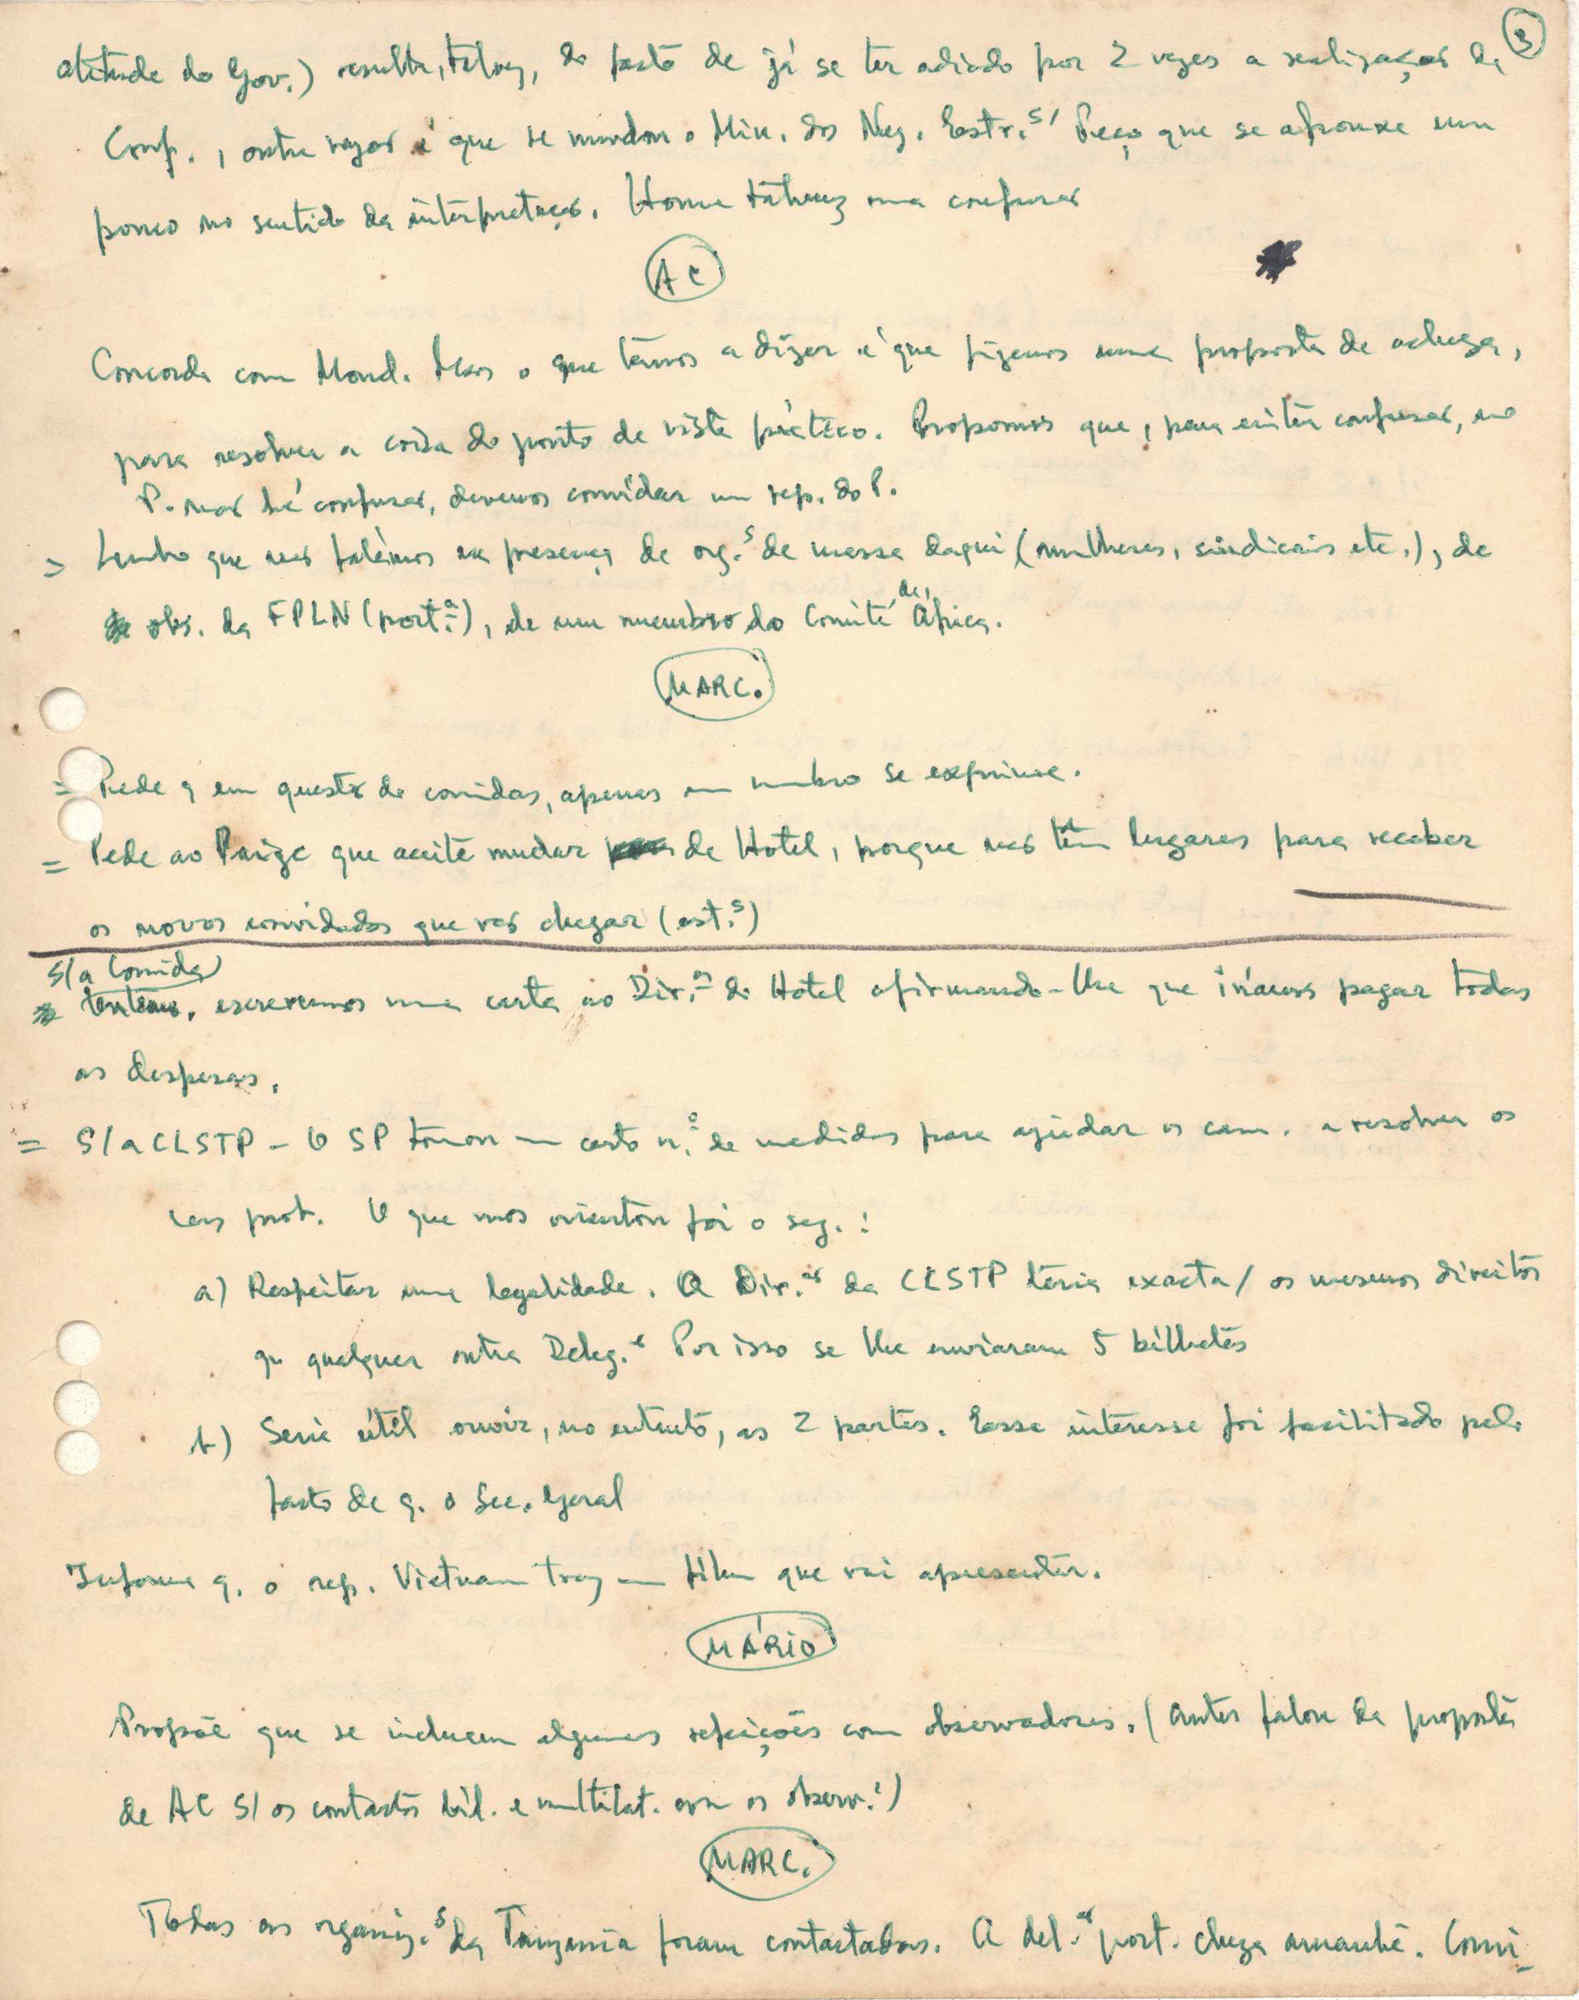 3
atitude do Gov.) resulta, talvez, do facto de já se ter adiado por 2 vezes a realização da
Conf., outra razão é que se mudou o Min. dos Neg. Estr.s Peço que se afrouxe um
pouco no sentido da interpretação. Houve talvez uma confusão
AC
Concorda com Mond. Mas o que temos a dizer é que fizemos uma proposta de achega,
para resolver a coisa do ponto de vista prático. Propomos que, para evitar confusão, no
P. não há confusão, devemos convidar um rep. do P.
> Lembro que não falámos na presença de org.s de massa daqui (mulheres, sindicais etc.), de
obs. da FPLN (port.a), de um membro do Comité de África.
MARC.
= Pede q em questão de comidas, apenas um membro se exprima.
= Pede ao Paigc que aceite mudar de Hotel, porque não têm lugares para receber
os novos convidados que vão chegar (est.s)
S/a Comida
ontem, escrevemos uma carta ao Dir.or do Hotel afirmando-lhe que iríamos pagar todas
as despesas.
= S/a CLSTP - O SP tomou um certo n.o de medidas para ajudar os cam. a resolver os
seus prob. O que nos orientou foi o seg.:
a) Respeitar uma legalidade. A Dir.ão da CLSTP teria exacta/ os mesmos direitos
q. qualquer outra Deleg.ão Por isso se lhe enviaram 5 bilhetes
b) Seria útil ouvir, no entanto, as 2 partes. Esse interesse foi facilitado pelo
facto de q. o Sec. Geral
Informa q. o rep. Vietnam traz um film que vai apresentar.
MÁRIO
Propõe que se incluem algumas refeições com observadores. (Antes falou da proposta
de AC S/ os contactos bil. e multilat. com os observ.s)
MARC.
Todas as organiz.s da Tanzania foram contactadas. A del.ão port. chega amanhã. Comi-